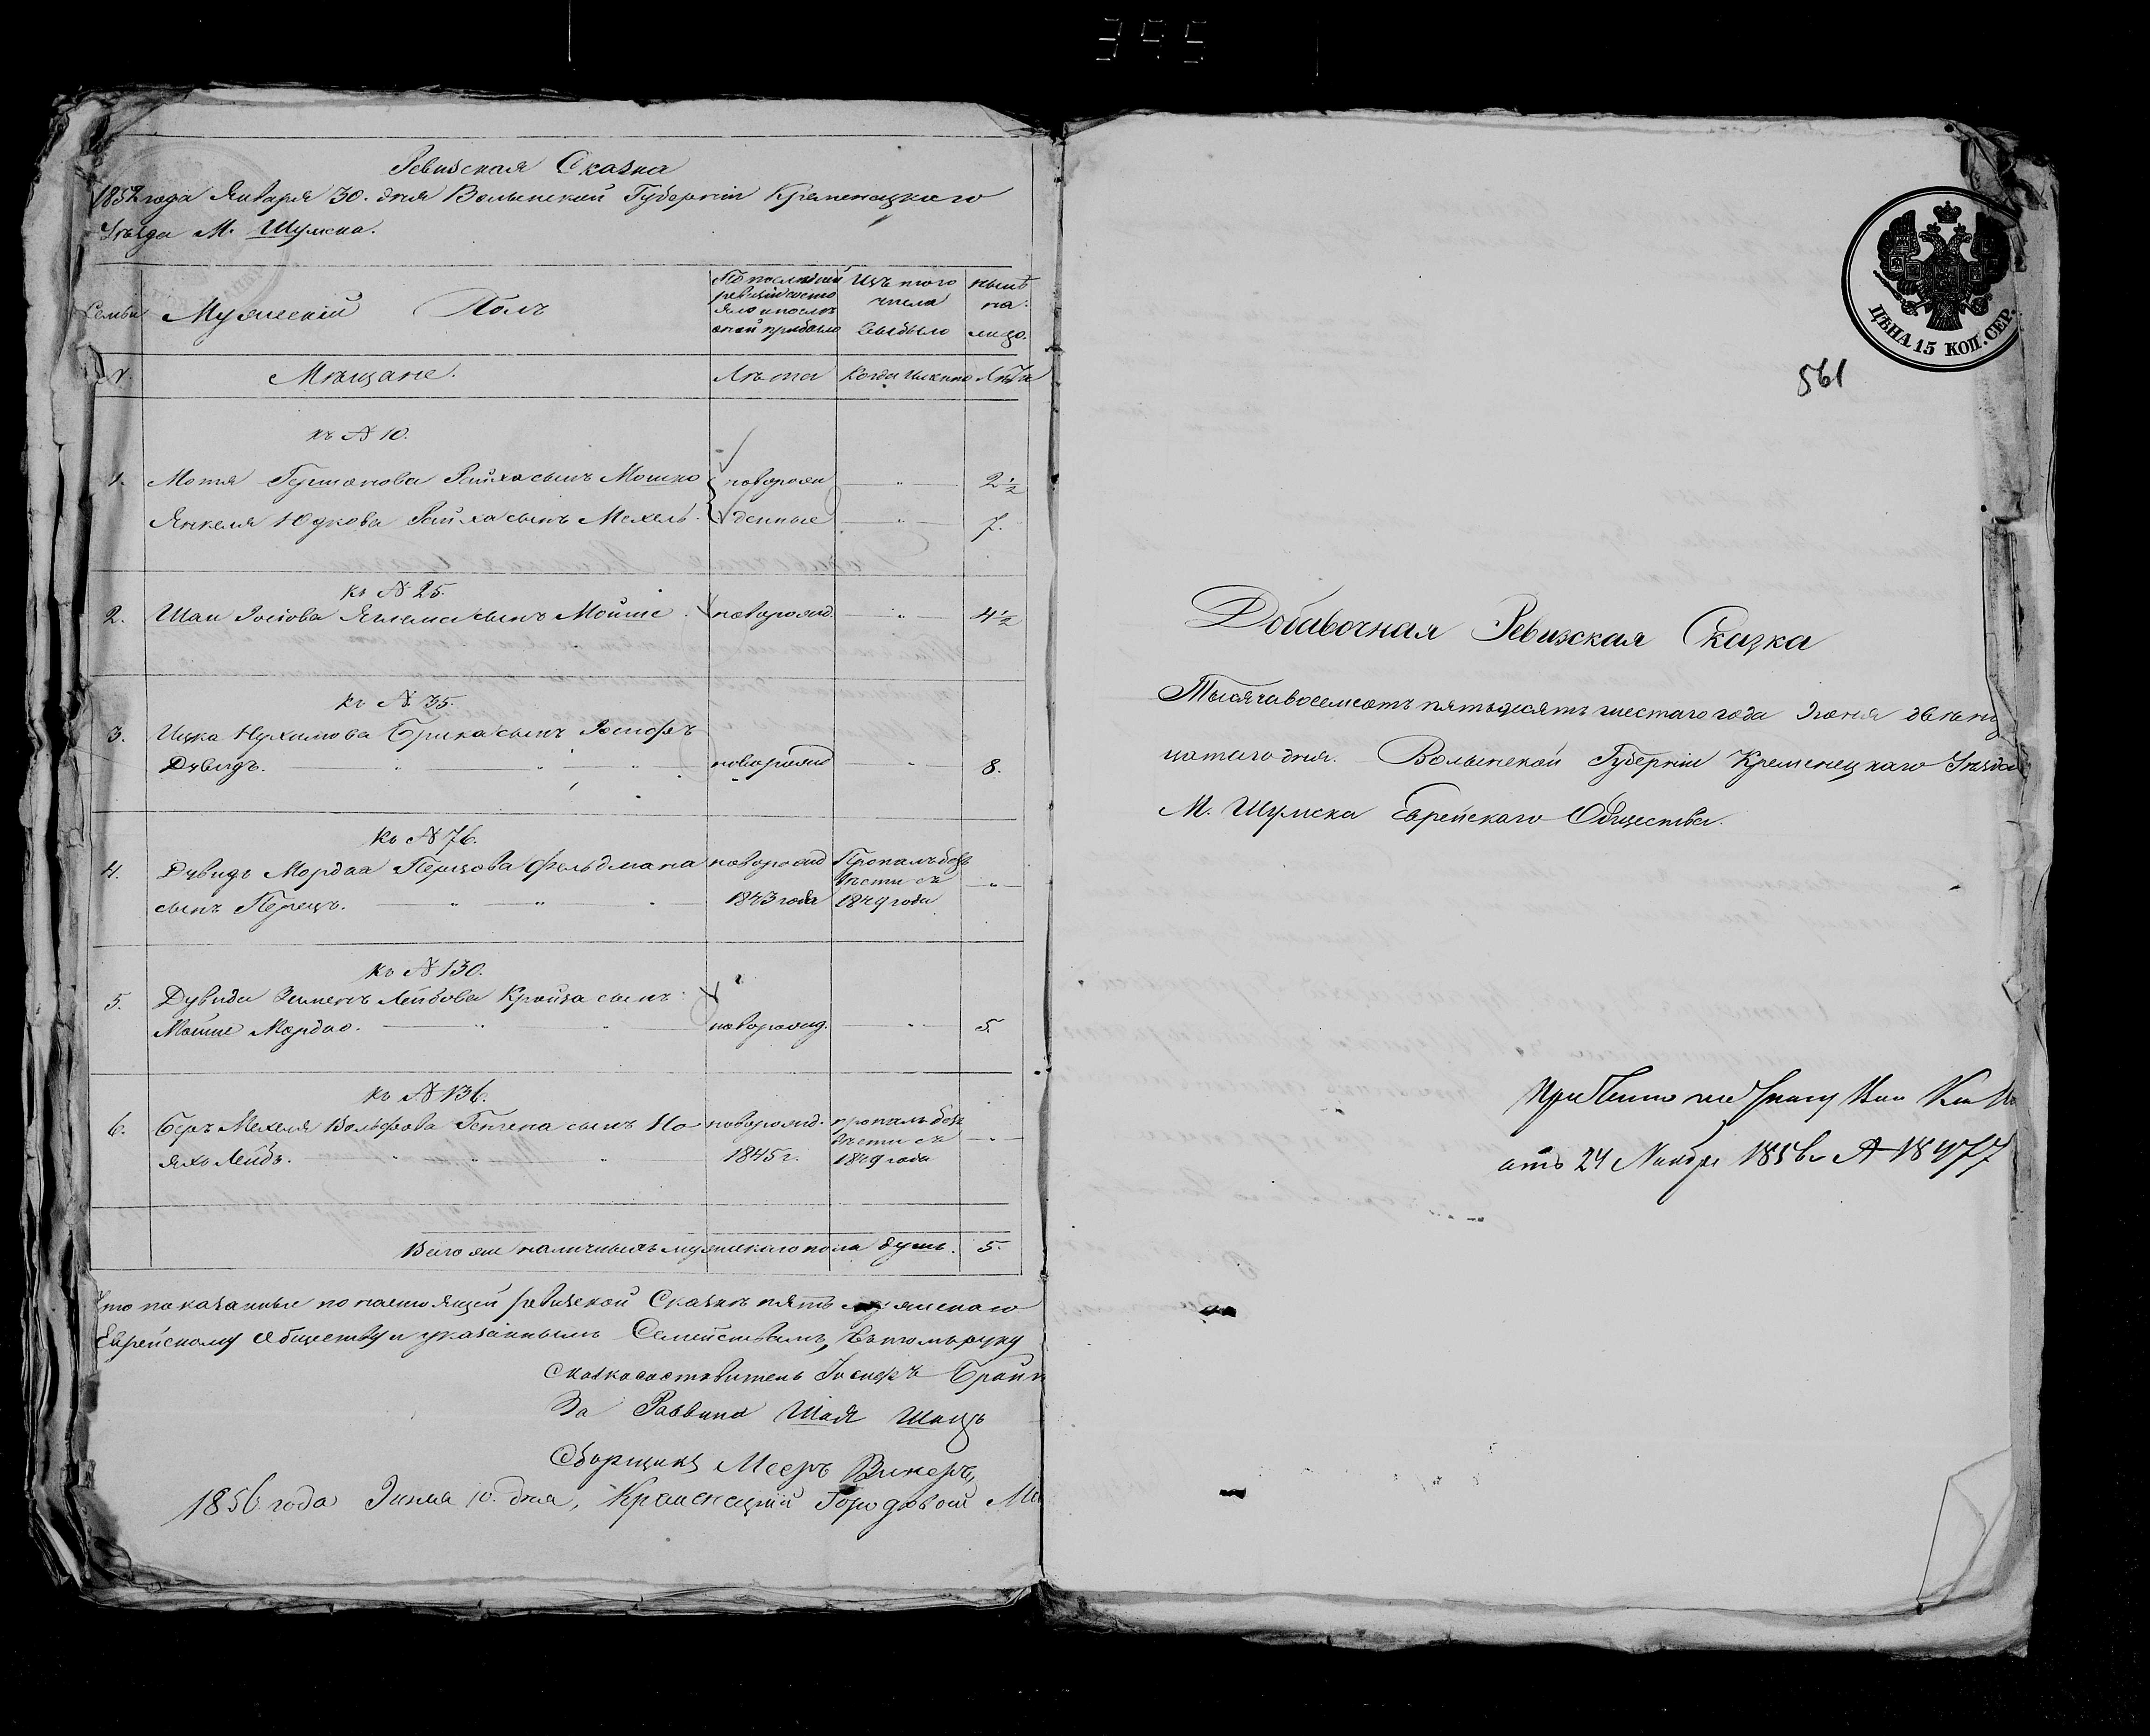 355
Ревизская Сказка
185 года Января 30. дня Волынской Губернии Кременецкого
Уѣзда М. Шумска.
Семьи
Мужескій Полъ
По последней ревизіи состояло и после оной прибыло
Изъ того числа выбыло
нынѣ на лицо.
Мѣщане.
Лѣта
Когда именно
Лѣта
къ № 10.
1. Мотя Гершонова Райха сынъ Мошко новорож 2½
Янкеля Юдкова Райха сынъ Мехель денные 7.
къ № 25.
2. Шаи сынъ Мойше новорожд. 4½
къ № 35.
3. Ицка Нухимова Брика сынъ Иосифъ
Дувидъ. новорожд 8.
къ № 76.
4. Дувидъ Мордка Перцова Фельдмана новорожд Пропалъ безъ
вѣсти съ
сынъ Перецъ. 1843 года 1849 года
къ № 130.
5. Дувида Лейбова сынъ
Мойше Мордко. новорожд. 5.
къ № 136.
6. Беръ Мехеля Вольфова сынъ Но новорожд. пропалъ безъ
вѣсти съ
яхъ Лейбъ. 1845 г. 1849 года
Всего же наличныхъ мужескаго пола душъ. 5.
Что показанные по настоящей ревизской Сказкѣ пять мужескаго
Еврейскому Обществу и указаннымъ Семействамъ, въ томъ руку
Сказкосоставитель Іосифъ
За Раввина Шая Шацъ
Сборщикъ Мееръ
1856 года 10. дня, Кременецкий Городовой
ЦѢНА 15 КОП. СЕР.
561
Добавочная Ревизская Сказка
Тысяча восемсотъ пятьдесятъ шестаго года двенад
цатаго дня. Волынской Губерніи Кременецкаго Уѣзда
М. Шумска Еврейскаго Общества.
При
отъ 24 Ноября 1856 № 18477